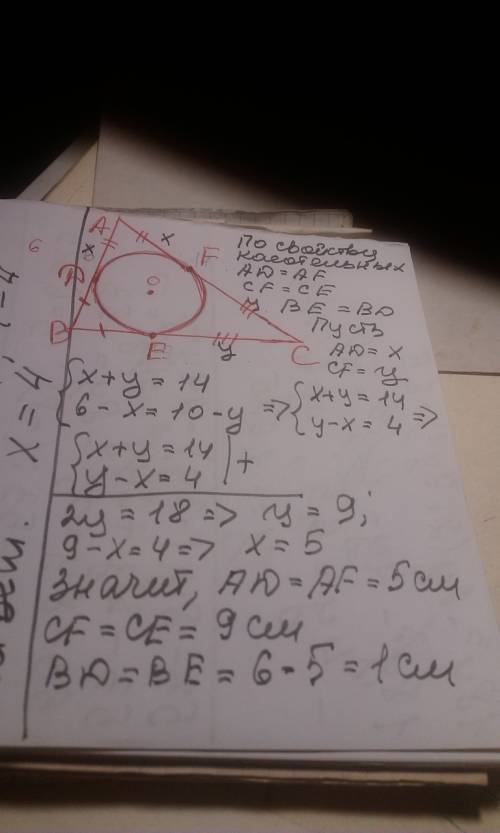 6
A
x
x
F
D
O
B
E
y
y
C
По свойству
касательных
AD = AF
CF = CE
BE = BD
Пусть
AD = x
CF = y
{ x+y = 14
6 - x = 10 - y => { x+y = 14
y - x = 4 =>
{ x+y = 14
y - x = 4 | +
2y = 18 => y = 9;
9 - x = 4 => x = 5
Значит, AD = AF = 5 см
CF = CE = 9 см
BD = BE = 6 - 5 = 1 см
x = 4